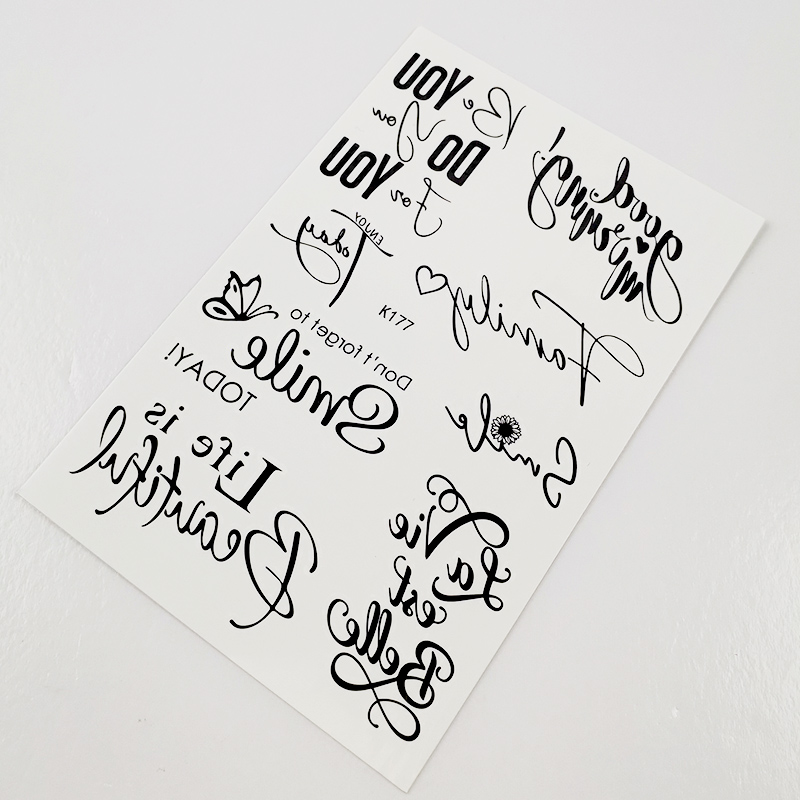 Be YOU
DO You
For YOU
good
morning!
ENJOY
Today
K177
Family
Don't forget to
Smile
TODAY!
Smile
Life is
Beautiful
La Vie
est
Belle